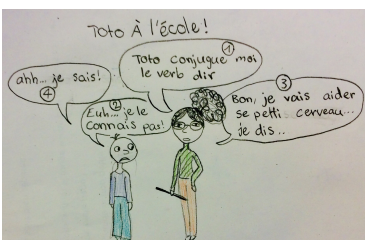 Toto À l'école!
①
Toto conjugue moi
le verb dir
②
Euh... je le
connais pas!
③
Bon, je vais aider
se petti cerveau...
je dis..
ahh... je sais!
④